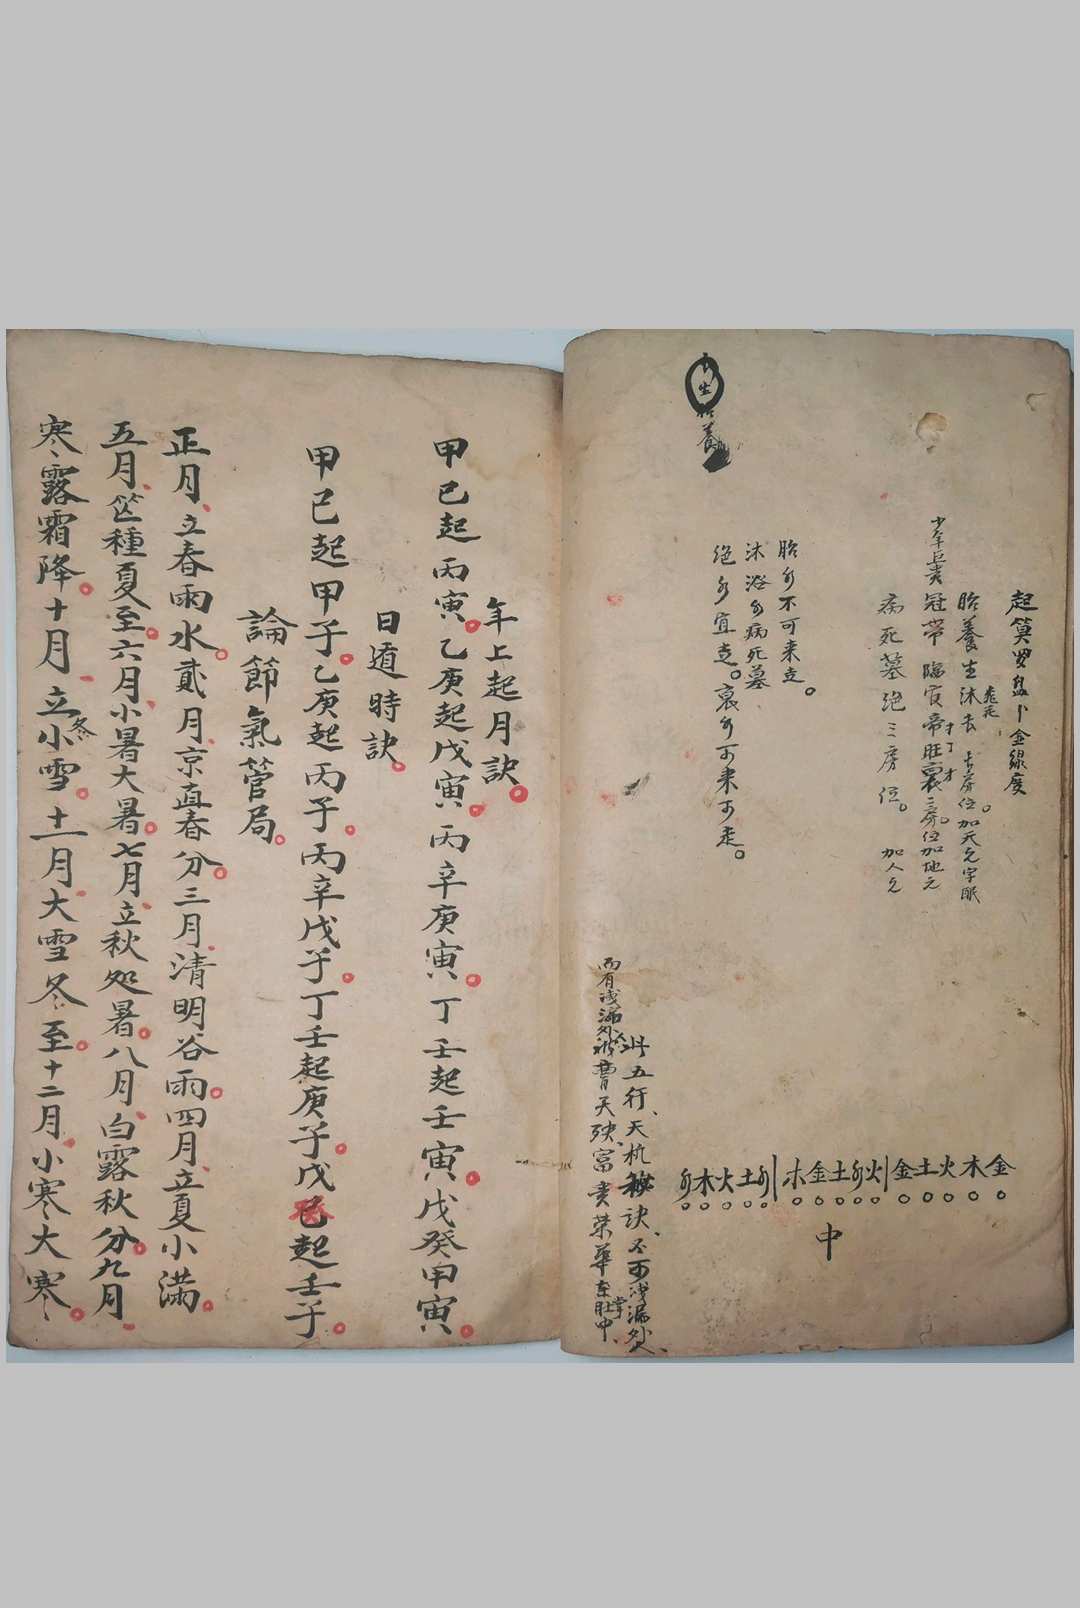 起算羅盆卜金線度
胎養生沐 長房位。加天元字眠
少年巨貴冠帶臨官帝旺衰三房位加地元
病死墓絕三房位。加人元
胎水不可来去。
沐浴水病死墓
絕水宜去。衰水可来可走。
生
養
金木火土金火水土金木水土火木水
中
此五行、天机秘訣、不可洩漏外人、
而有洩漏外人 天殃、富貴荣華在掌中、
年上起月訣。
甲己起丙寅。乙庚起戊寅。丙辛庚寅。丁壬起壬寅。戊癸甲寅。
日遁時訣。
甲己起甲子。乙庚起丙子。丙辛戊子。丁壬起庚子。戊起壬子。
論節氣管局。
正月、立春雨水。貳月、京直春分。三月、清明谷雨。四月、立夏小滿。
五月、芒種夏至。六月、小暑大暑。七月、立秋処暑。八月、白露秋分。九月、
寒露霜降。十月、立冬小雪。十一月、大雪冬至。十二月、小寒大寒。